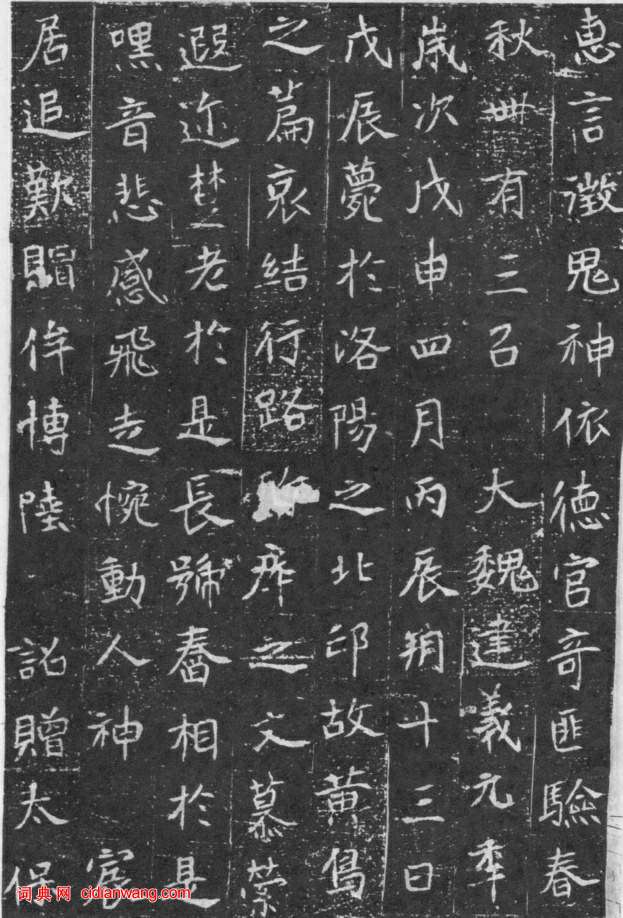 惠言徵鬼神依德官奇匪驗春
秋卌有三㠯 大魏建義元秊
歲次戊申四月丙辰朔十三日
戊辰薨於洛陽之北邙故黃鳥
之篇哀結行路斥之文慕縈
遐迩楚老於是長號舂相於是
嘿音悲感飛走惋動人神 宸
居追歎賵侔博陸 詔贈太保
词典网 cidianwang.com